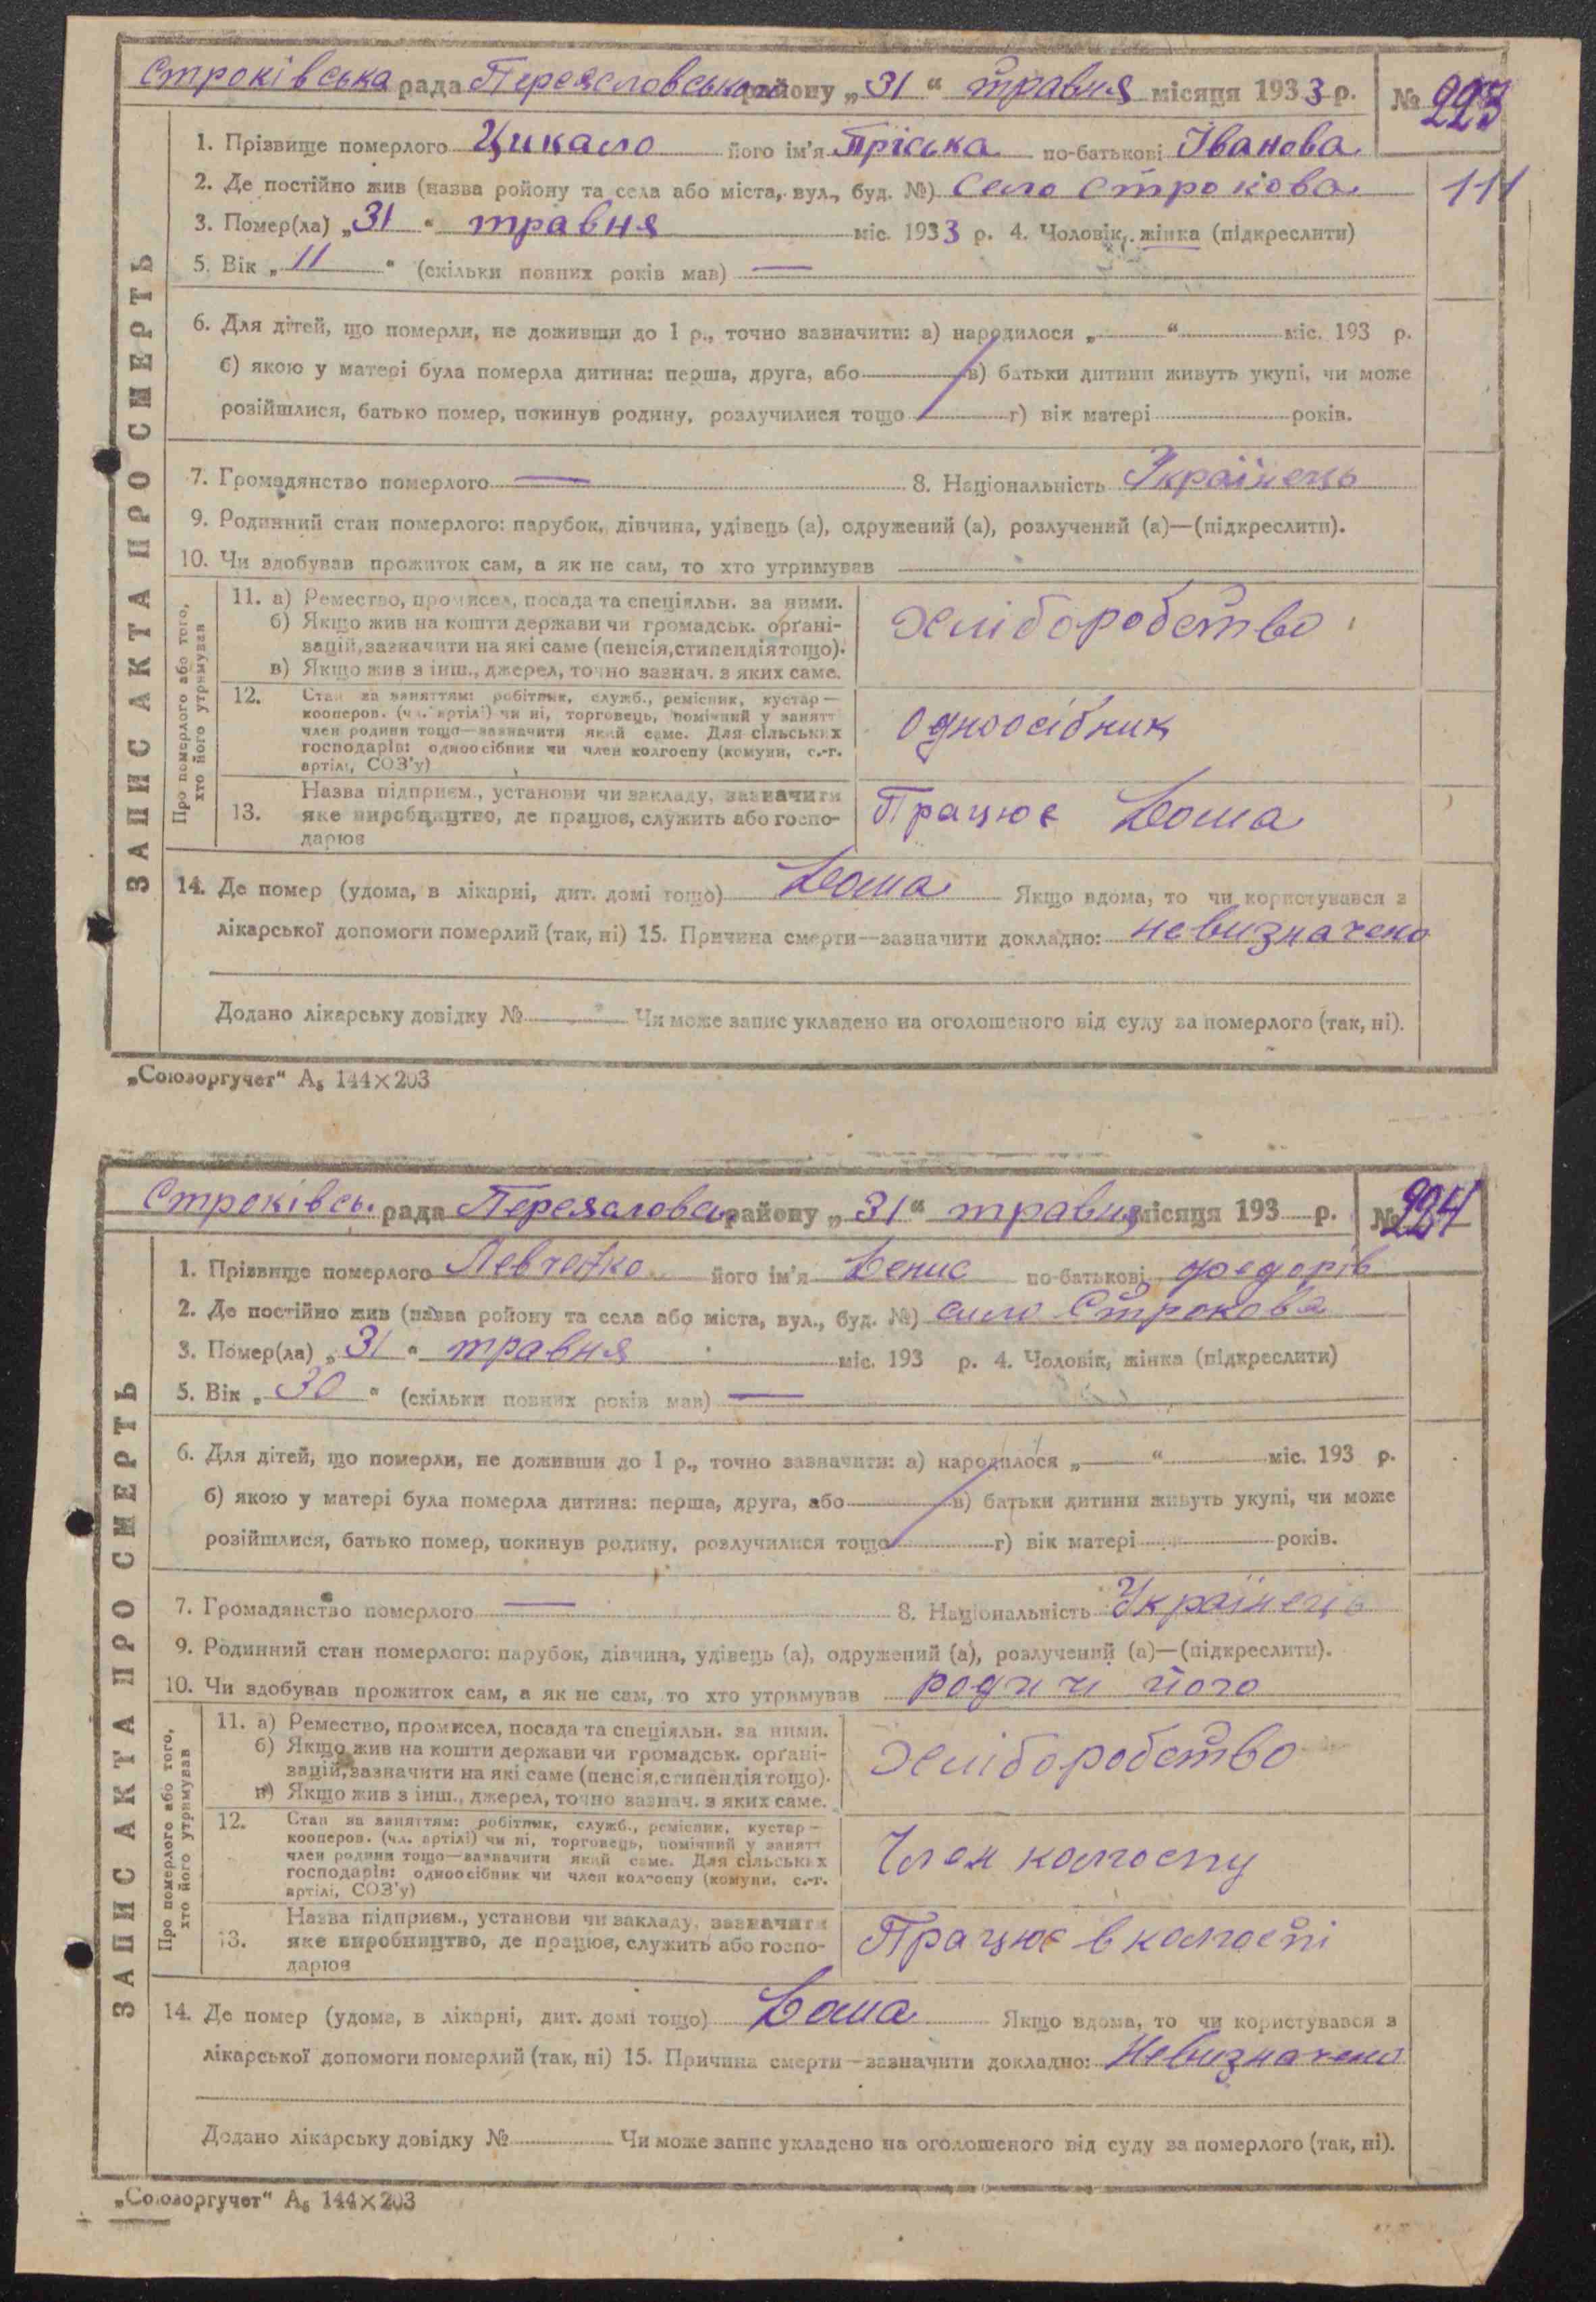 Строківська рада Переясловськ району „31“ травня місяця 1933 р. № 223
1. Прізвище померлого Цикало його ім'я Пріська по-батькові Іванова
111
2. Де постійно жив (назва ройону та села або міста, вул., буд. №) Село Строкова
3. Помер(ла) „31“ травня міс. 1933 р. 4. Чоловік, жінка (підкреслити)
5. Вік „11“ (скільки повних років мав) —
6. Для дітей, що померли, не доживши до 1 р., точно зазначити: а) народилося „ “ міс. 193 р.
б) якою у матері була померла дитина: перша, друга, або в) батьки дитини живуть укупі, чи може
розійшлися, батько помер, покинув родину, розлучилися тощо г) вік матері років.
7. Громадянство померлого — 8. Національність Українець
9. Родинний стан померлого: парубок, дівчина, удівець (а), одружений (а), розлучений (а)—(підкреслити).
10. Чи здобував прожиток сам, а як не сам, то хто утримував
ЗАПИС АКТА ПРО СМЕРТЬ
Про померлого або того, хто його утримував
11. а) Ремество, промисел, посада та спеціяльн. за ними.
б) Якщо жив на кошти держави чи громадськ. орґані-
зацій, зазначити на які саме (пенсія, стипендія тощо).
в) Якщо жив з інш., джерел, точно зазнач. з яких саме.
Хліборобство
12. Стан за заняттям: робітник, служб., ремісник, кустар—
кооперов. (чл. артілі) чи ні, торговець, помічний у занятт
член родини тощо—зазначити який саме. Для сільських
господарів: одноосібник чи член колгоспу (комуни, с.-г.
артілі, СОЗ'у)
Одноосібник
13. Назва підприєм., установи чи закладу, зазначити
яке виробництво, де працює, служить або госпо-
дарює
Працює Дома
14. Де помер (удома, в лікарні, дит. домі тощо) Дома Якщо вдома, то чи користувався з
лікарської допомоги померлий (так, ні) 15. Причина смерти—зазначити докладно: невизначено
Додано лікарську довідку № Чи може запис укладено на оголошеного від суду за померлого (так, ні).
„Союзоргучет“ А₅ 144×203
Строківсь. рада Переяслов району „31“ травня місяця 193 р. № 224
1. Прізвище померлого Левченко його ім'я Денис по-батькові Федорів
2. Де постійно жив (назва ройону та села або міста, вул., буд. №) село Строкова
3. Помер(ла) „31“ травня міс. 193 р. 4. Чоловік, жінка (підкреслити)
5. Вік „30“ (скільки повних років мав) —
6. Для дітей, що померли, не доживши до 1 р., точно зазначити: а) народилося „ “ міс. 193 р.
б) якою у матері була померла дитина: перша, друга, або в) батьки дитини живуть укупі, чи може
розійшлися, батько помер, покинув родину, розлучилися тощо г) вік матері років.
7. Громадянство померлого — 8. Національність Українець
9. Родинний стан померлого: парубок, дівчина, удівець (а), одружений (а), розлучений (а)—(підкреслити).
10. Чи здобував прожиток сам, а як не сам, то хто утримував родичі його
ЗАПИС АКТА ПРО СМЕРТЬ
Про померлого або того, хто його утримував
11. а) Ремество, промисел, посада та спеціяльн. за ними.
б) Якщо жив на кошти держави чи громадськ. орґані-
зацій, зазначити на які саме (пенсія, стипендія тощо).
в) Якщо жив з інш., джерел, точно зазнач. з яких саме.
Хліборобство
12. Стан за заняттям: робітник, служб., ремісник, кустар—
кооперов. (чл. артілі) чи ні, торговець, помічний у занятт
член родини тощо—зазначити який саме. Для сільських
господарів: одноосібник чи член колгоспу (комуни, с.-г.
артілі, СОЗ'у)
Член колгоспу
13. Назва підприєм., установи чи закладу, зазначити
яке виробництво, де працює, служить або госпо-
дарює
Працює в колгоспі
14. Де помер (удома, в лікарні, дит. домі тощо) Дома Якщо вдома, то чи користувався з
лікарської допомоги померлий (так, ні) 15. Причина смерти—зазначити докладно: Невизначено
Додано лікарську довідку № Чи може запис укладено на оголошеного від суду за померлого (так, ні).
„Союзоргучет“ А₅ 144×203